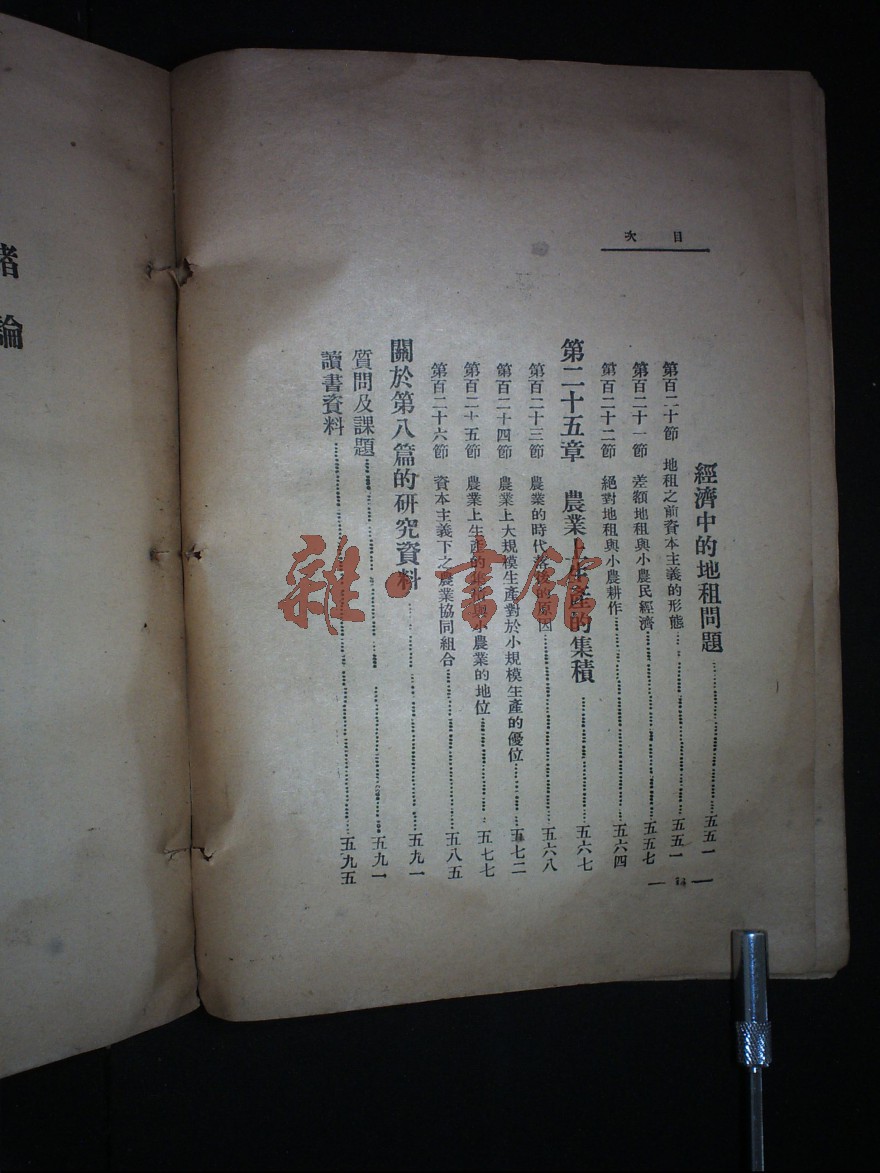 目次
經濟中的地租問題……五五一
第百二十節 地租之前資本主義的形態……五五一
第百二十一節 差額地租與小農民經濟……五五七
第百二十二節 絕對地租與小農耕作……五六四
第二十五章 農業上生產的集積……五六七
第百二十三節 農業的時代落後的原因……五六八
第百二十四節 農業上大規模生產對於小規模生產的優位……五七二
第百二十五節 農業上生產的集積與小農業的地位……五七七
第百二十六節 資本主義下之農業協同組合……五八五
關於第八篇的研究資料……五九一
質問及課題……五九一
讀書資料……五九五
緒論
雜·書館